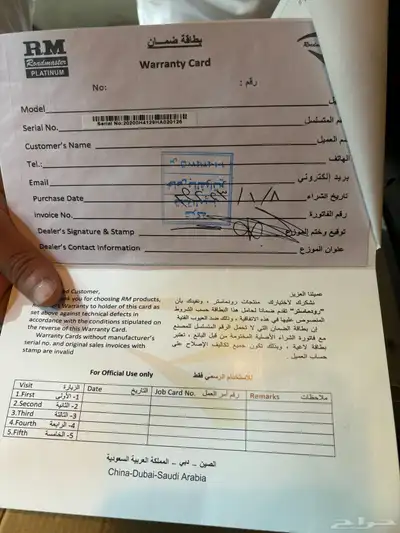 RM
Roadmaster
PLATINUM
بطاقة ضمــــان
Warranty Card
No:
رقم :
Model
Serial No.
Serial No:20200H4126HA030126
المتسلسل
Customer's Name
العميل
Tel.:
الهاتف
Email
بريد إلكتروني
Purchase Date
تاريخ الشراء
Invoice No.
رقم الفاتورة
Dealer's Signature & Stamp
توقيع وختم الموزع
Dealer's Contact Information
عنوان الموزع
Customer,
you for choosing RM products,
Warranty to holder of this card as
set above against technical defects in
accordance with the conditions stipulated on
the reverse of this Warranty Card.
Warranty Cards without manufacturer's
serial no. and original sales invoices with
stamp are invalid
عميلنا العزيز
نشكرك لاختيارك منتجات رودماستر ، ونفيدك بأن
"رودماستر" تقدم ضمانا لحامل هذا البطاقة حسب الشروط
المنصوص عليها في هذه الاتفاقية ، وذلك ضد العيوب الفنية
إن بطاقة الضمان التي لا تحمل الرقم المتسلسل للمصنع
مع فاتورة الشراء الأصلية المختومة من قبل البائع ، تعتبر
بطاقة لاغية ، وبذلك تكون جميع تكاليف الإصلاح على
حساب العميل .
For Official Use only
للاستخدام الرسمي فقط
Visit الزيارة Date التاريخ Job Card No. رقم أمر العمل Remarks ملاحظات
1.First 1- الأولى
2.Second 2- الثانية
3.Third 3- الثالثة
4.Fourth 4- الرابعة
5.Fifth 5- الخامسة
الصين - دبي - المملكة العربية السعودية
China-Dubai-Saudi Arabia
حراج